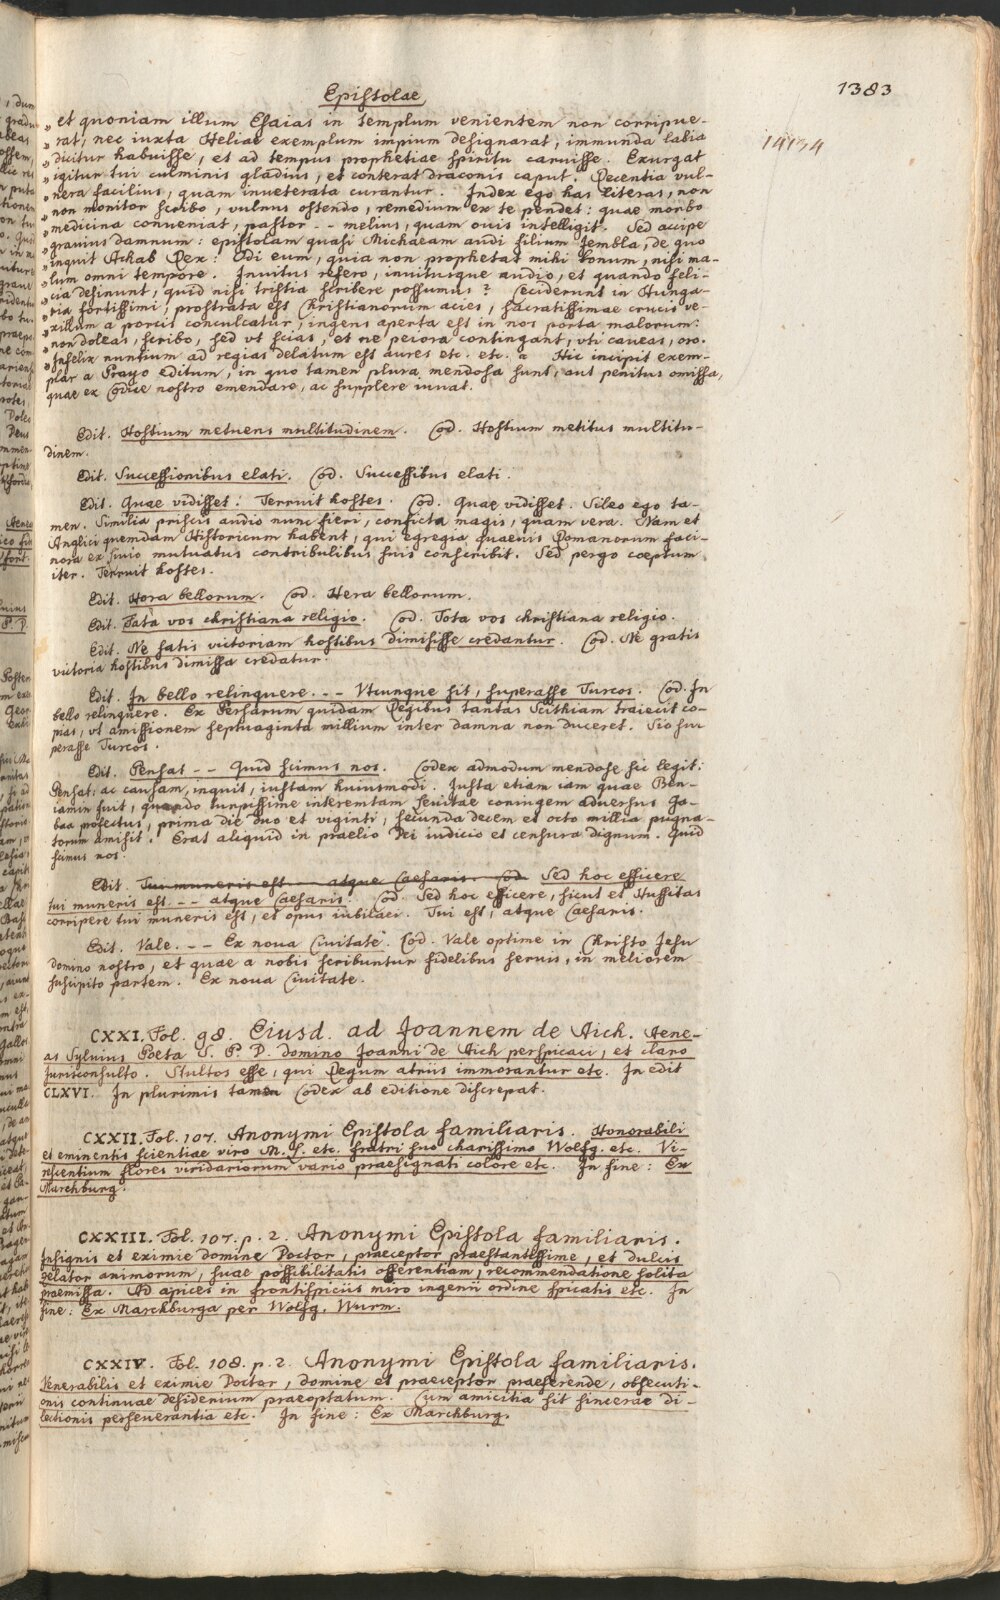 Epistolae
1383
14134
„ et quoniam illum Esaias in templum venientem non corripue-
„ rat, nec iuxta Heliae exemplum impium designarat, immunda labia
„ dicitur habuisse, et ad tempus prophetiae spiritu caruisse. Exurgat
„ igitur tui culminis gladius, et conterat draconis caput. Recentia vul-
„ nera facilius, quam inueterata curantur. Index ego has literas, non
„ non monitor scribo, vulnus ostendo, remedium ex te pendet: quae morbo
„ medicina conueniat, pastor -- melius, quam ouis intelligit. Sed accipe
„ grauius damnum: epistolam quasi Michaeam audi filium Jembla, de quo
„ inquit Achab Rex: Odi eum, quia non prophetat mihi bonum, nisi ma-
„ lum omni tempore. Inuitus refero, inuitusque audio, et quando feli-
„ cia desinunt, quid nisi tristia scribere possumus? Ceciderunt in Hunga-
„ ria fortissimi, prostrata est Christianorum acies, sacratissimae crucis ve-
„ xillum a porcis conculcatur, ingens aperta est in nos porta malorum:
„ non doleas, scribo, sed vt scias, et ne peiora contingant, vti caueas, oro.
„ Infelix nuntium ad regias delatum est aures etc. etc. „ Hic incipit exem-
plar a Prayo editum, in quo tamen plura mendosa sunt, aut penitus omissa,
quae ex Codice nostro emendare, ac supplere iuuat.
Edit. Hostium metuens multitudinem. Cod. Hostium metitus multitu-
dinem.
Edit. Successionibus elati. Cod. Successibus elati.
Edit. Quae vidisset: Terruit hostes. Cod. Quae vidisset. Sileo ego ta-
men. Similia priscis audio nunc fieri, conficta magis, quam vera. Nam et
Anglici quemdam Historicum habent, qui egregia quaeuis Romanorum faci-
nora ex suo mutuatus contribulibus suis conscribit. Sed pergo coeptum
iter. Terruit hostes.
Edit. Hora bellorum. Cod. Hera bellorum.
Edit. Fata vos christiana religio. Cod. Tota vos christiana religio.
Edit. Ne satis victoriam hostibus dimisisse credantur. Cod. Ne gratis
victoria hostibus dimissa credatur.
Edit. In bello relinquere. -- Vtcunque sit, superasse Turcos. Cod. In
bello relinquere. Ex Persarum quidam Regibus tantas Scithiam traiecit co-
pias, vt amissionem septuaginta millium inter damna non duceret. Sio su-
perasse Turcos.
Edit. Pensat -- Quid scimus nos. Codex admodum mendose sic legit:
Pensat: ac causam, inquit, iustam huiusmodi. Iusta etiam iam quae Ben-
iamin fuit, quando turpissime interemtam Leuitae coniugem aduersus Ga-
baa profectus, prima die duo et viginti, secunda decem et octo millia pugna-
torum amisit. Erat aliquid in praelio Dei iudicio et censura dignum. Quid
scimus nos.
Edit. Tui muneris est -- atque Caesaris. Cod. Sed hoc efficere
tui muneris est. -- atque Caesaris. Cod. Sed hoc efficere, sicut et Hussitas
corripere tui muneris est, et opus iubilaei. Tui est, atque Caesaris.
Edit. Vale. -- Ex noua Ciuitate. Cod. Vale optime in Christo Jesu
domino nostro, et quae a nobis scribuntur fidelibus seruis, in meliorem
suscipito partem. Ex noua Ciuitate.
CXXI. Fol. 98. Eiusd. ad Joannem de Aich. Aene-
as Sylvius Poeta S. P. D. domino Joanni de Aich perspicaci, et claro
Jurisconsulto. Stultos esse, qui Regum atriis immorantur etc. In edit
CLXVI. In plurimis tamen Codex ab editione discrepat.
CXXII. Fol. 107. Anonymi Epistola familiaris. Honorabili
et eminentis scientiae viro M. S. etc. fratri suo charissimo Wolfg. etc. Vi-
rescentium flores viridariorum vario praesignati colore etc. In fine: Ex
Marchburg.
CXXIII. Fol. 107. p. 2. Anonymi Epistola familiaris.
Insignis et eximie domine Doctor, praeceptor praestantissime, et dulcis
zelator animorum, suae possibilitatis offerentiam, recommendatione solita
praemissa. Ad apices in frontispiciis miro ingenii ordine spicatis etc. In
fine: Ex Marckburga per Wolfg. Wurm.
CXXIV. Fol. 108. p. 2. Anonymi Epistola familiaris.
Venerabilis et eximie Doctor, domine et praeceptor praeferende, obsecuti-
onis continuae desiderium praeoptatum. Cum amicitia sit sincerae di-
lectionis perseuerantia etc. In fine: Ex Marchburg.